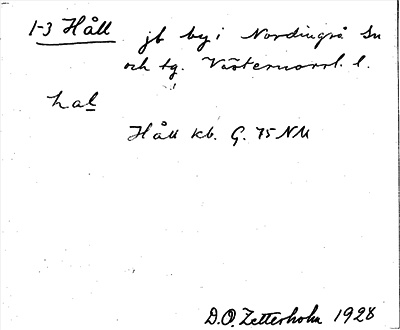 1-3 Håll jb by i Nordingrå sn
och tg. Västernorrl. l.
hal
Håll kb. G. 75 NM
D.O. Zetterholm 1928